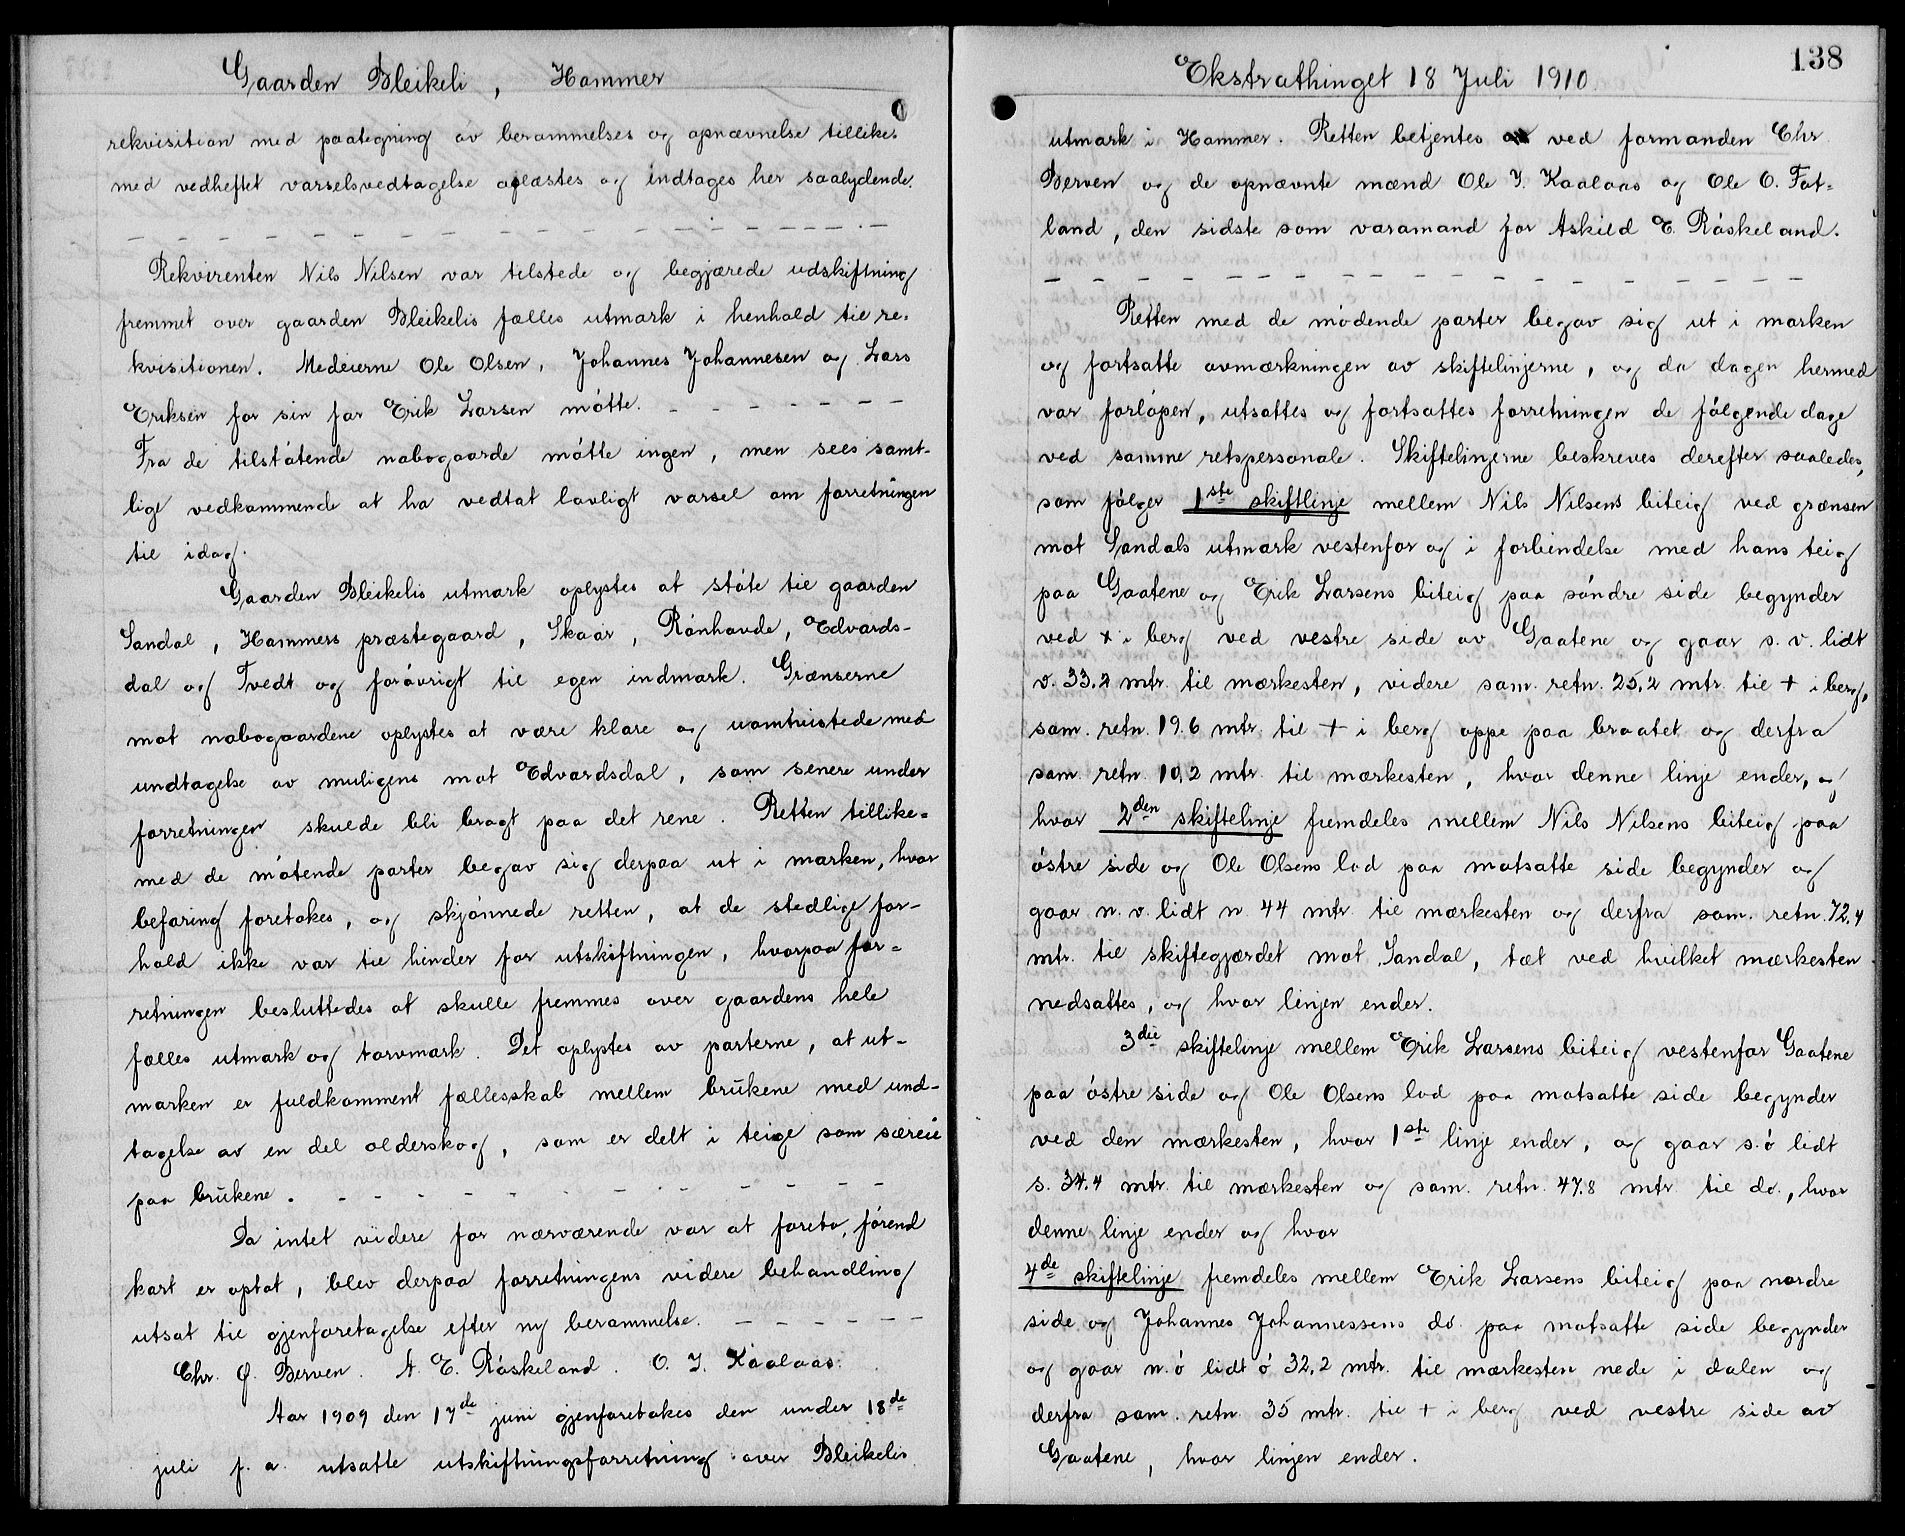 Gaarden Bleikeli, Hammer
rekvisition med paategning av berammelses og opnævnelse tillikes
med vedheftet varselsvedtagelse oplæstes og indtages her saalydende.
— — — — — — — — — — — — — — — —
Rekvirenten Nils Nilsen var tilstede og begjærede udskiftning
fremmet over gaarden Bleikelis fælles utmark i henhold til re-
kvisitionen. Medeierne Ole Olsen, Johannes Johannesen og Lars
Eriksen for sin far Erik Larsen mötte. — — — — — — —
Fra de tilstötende nabogaarde mötte ingen, men sees samt-
lige vedkommende at ha vedtat lovligt varsel om forretningen
til idag.
Gaarden Bleikelis utmark oplystes at stöte til gaarden
Sandal, Hammers præstegaard, Skaar, Rönhovde, Edvards-
dal og Tvedt og forövrigt til egen indmark. Grænserne
mot nabogaardene oplystes at være klare og uomtvistede med
undtagelse av muligens mot Edvardsdal, som senere under
forretningen skulde bli bragt paa det rene. Retten tillike-
med de mötende parter begav sig derpaa ut i marken, hvor
befaring foretokes, og skjönnede retten, at de stedlige for-
hold ikke var til hinder for utskiftningen, hvorpaa for-
retningen besluttedes at skulle fremmes over gaardens hele
fælles utmark og torvmark. Det oplystes av parterne, at ut-
marken er fuldkomment fællesskab mellem brukene med und-
tagelse av en del olderskog, som er delt i teige som særeie
paa brukene. — — — — — — — — — — —
Da intet videre for nærværende var at foreta, förend
kart er optat, blev derpaa forretningens videre behandling
utsat til gjenforetagelse efter ny berammelse. — — — — — —
Chr. G. Berven. A. E. Röskeland. O. J. Kaalaas.
Aar 1909 den 17de juni gjenforetokes den under 18de
juli f. a. utsatte utskiftningsforretning over Bleikelis
Ekstrathinget 18 Juli 1910
138
utmark i Hammer. Retten betjentes ved formanden Chr.
Berven og de opnævnte mænd Ole J. Kaalaas og Ole O. Fat-
land, den sidste som varamand for Askild E. Röskeland.
— — — — — — — — — — — — — — —
Retten med de mödende parter begav sig ut i marken
og fortsatte avmærkningen av skiftelinjerne, og da dagen hermed
var forlöpen, utsattes og fortsattes forretningen de fölgende dage
ved samme retspersonale. Skiftelinjerne beskreves derefter saaledes,
som fölger 1ste skiftlinje mellem Nils Nilsens biteig ved grænsen
mot Sandals utmark vestenfor og i forbindelse med hans teig
paa Gaatene og Erik Larsens biteig paa söndre side begynder
ved + i berg ved vestre side av Gaatene og gaar s. v. lidt
v. 33.2 mtr. til mærkesten, videre sam. retn. 25,2 mtr. til + i berg,
sam. retn. 19.6 mtr. til + i berg oppe paa braatet og derfra
sam. retn. 10,2 mtr. til mærkesten, hvor denne linje ender, og
hvor 2den skiftelinje fremdeles mellem Nils Nilsens biteig paa
östre side og Ole Olsens lod paa motsatte side begynder og
gaar n. v. lidt n. 44 mtr. til mærkesten og derfra sam. retn. 72,4
mtr. til skiftegjærdet mot Sandal, tæt ved hvilket mærkesten
nedsattes, og hvor linjen ender.
3die skiftelinje mellem Erik Larsens biteig vestenfor Gaatene
paa östre side og Ole Olsens lod paa motsatte side begynder
ved den mærkesten, hvor 1ste linje ender, og gaar s. ö lidt
s. 34.4 mtr. til mærkesten og sam. retn. 47.8 mtr. til do., hvor
denne linje ender og hvor
4de skiftelinje fremdeles mellem Erik Larsens biteig paa nordre
side og Johannes Johannessens do. paa motsatte side begynder
og gaar n. ö lidt ö 32,2 mtr. til mærkesten nede i dalen og
derfra sam. retn. 35 mtr. til + i berg ved vestre side av
Gaatene, hvor linjen ender.